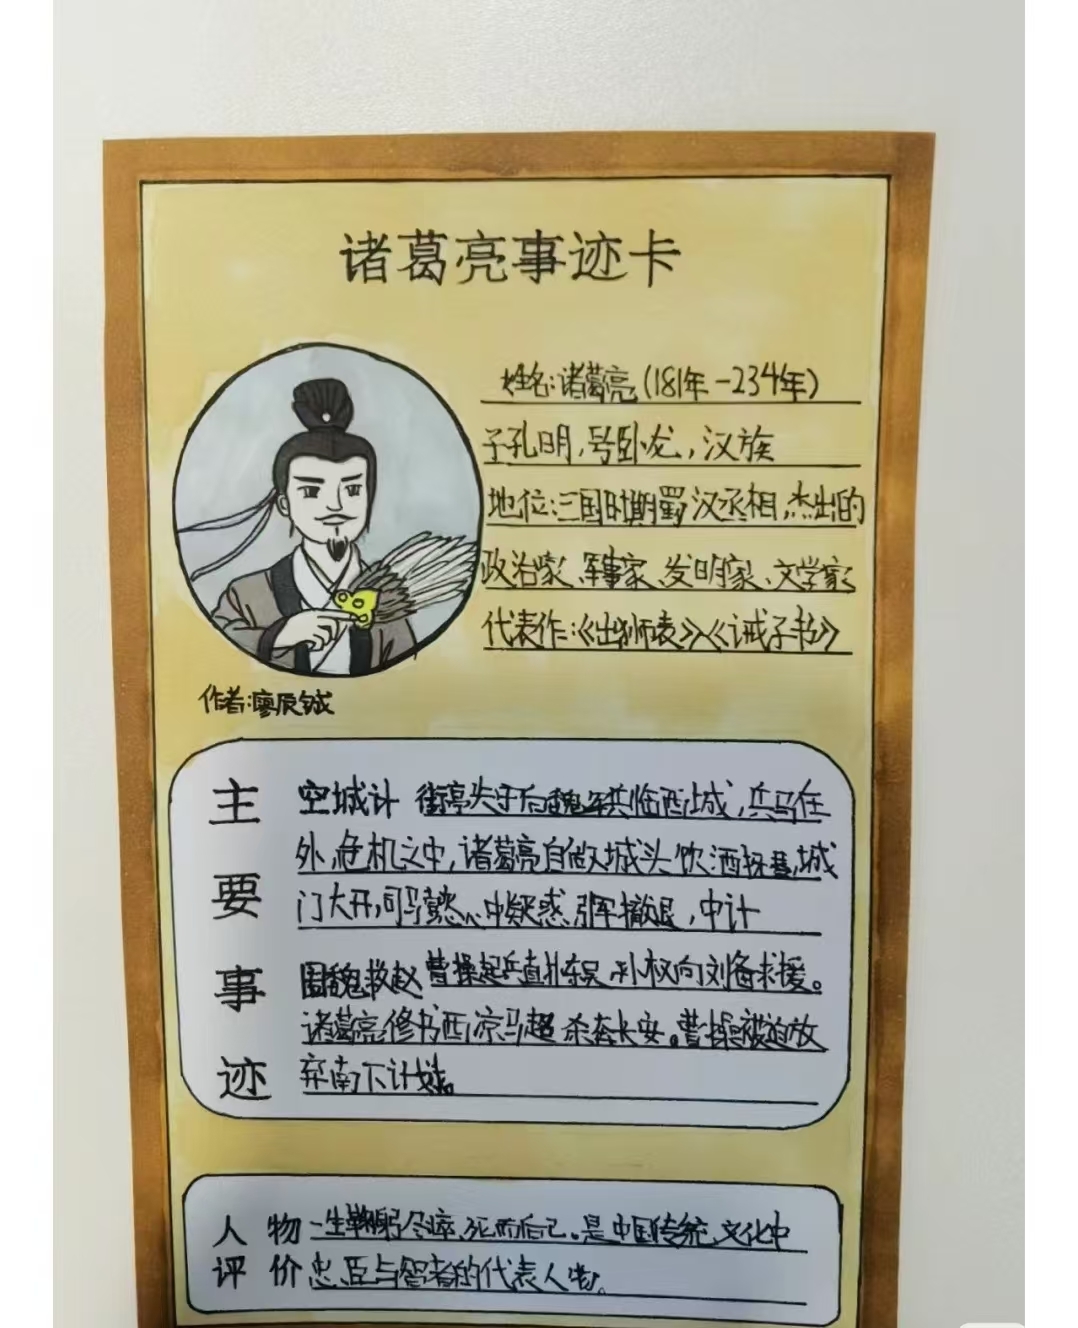 诸葛亮事迹卡
姓名:诸葛亮(181年-234年)
子孔明,号卧龙,汉族
地位:三国时期蜀汉丞相,杰出的
政治家、军事家、发明家、文学家
代表作:《出师表》《诫子书》
作者:廖辰铖
主要事迹
空城计 街亭失守后魏军兵临西城,兵马在
外,危机之中,诸葛亮自做城头饮酒抚琴,城
门大开,司马懿心中疑惑,引军撤退,中计
围魏救赵 曹操起兵直扑东吴,孙权向刘备求援。
诸葛亮修书西凉马超杀奔长安。曹操被迫放
弃南下计划。
人物评价
一生鞠躬尽瘁,死而后己。是中国传统文化中
忠臣与智者的代表人物。